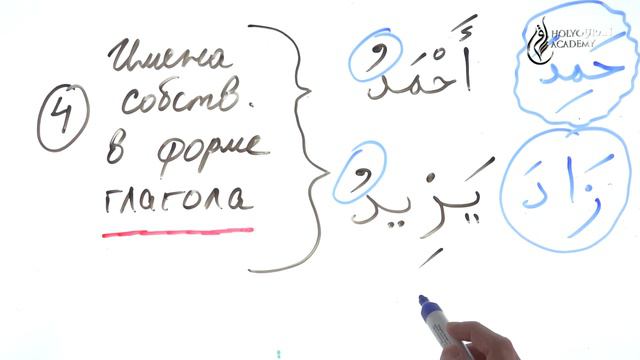 ④
Имена
собств.
в форме
глагола
أَحْمَدُ
حَمِدَ
يَزِيدُ
زَادَ
HOLYQURAN
ACADEMY